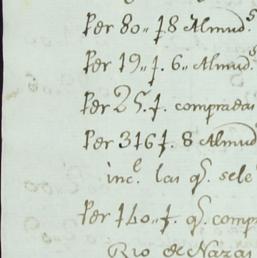 Per 80,, f 8 Almud.s
Per 19,, f. 6,, Almud.s
Per 25. f. compradas
Per 316 f. 8 Almud
inc.l las q.s sele
Per 140,, f. q.s comp
Rio de Nazas